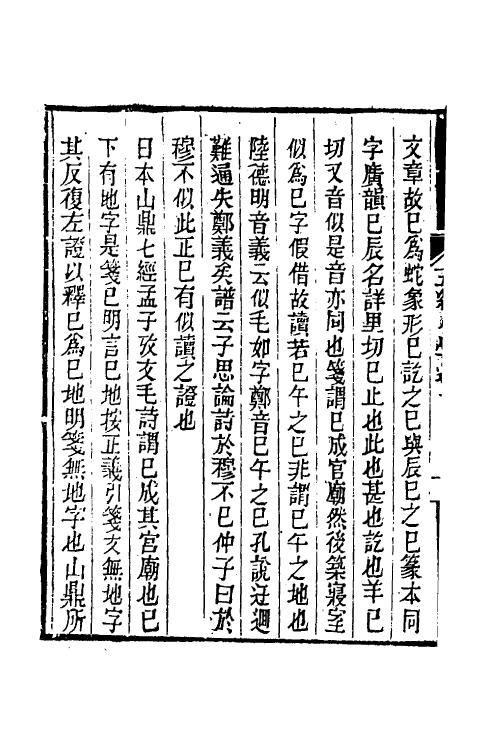 文章故巳爲蛇象形巳訖之巳與辰巳之巳篆本同
字廣韻巳辰名詳里切巳止也此也甚也訖也羊巳
切又音似是音亦同也箋謂巳成宫廟然後築寢室
似爲巳字假借故讀若巳午之巳非謂巳午之地也
陸德明音義云似毛如字鄭音巳午之巳孔說迂迴
難通失鄭義矣譜云子思論詩於穆不巳仲子曰於
穆不似此正巳有似讀之證也
日本山鼎七經孟子攷文毛詩謂巳成其宫廟也巳
下有地字是箋巳明言巳地按正義引箋文無地字
其反復左證以釋巳爲巳地明箋無地字也山鼎所